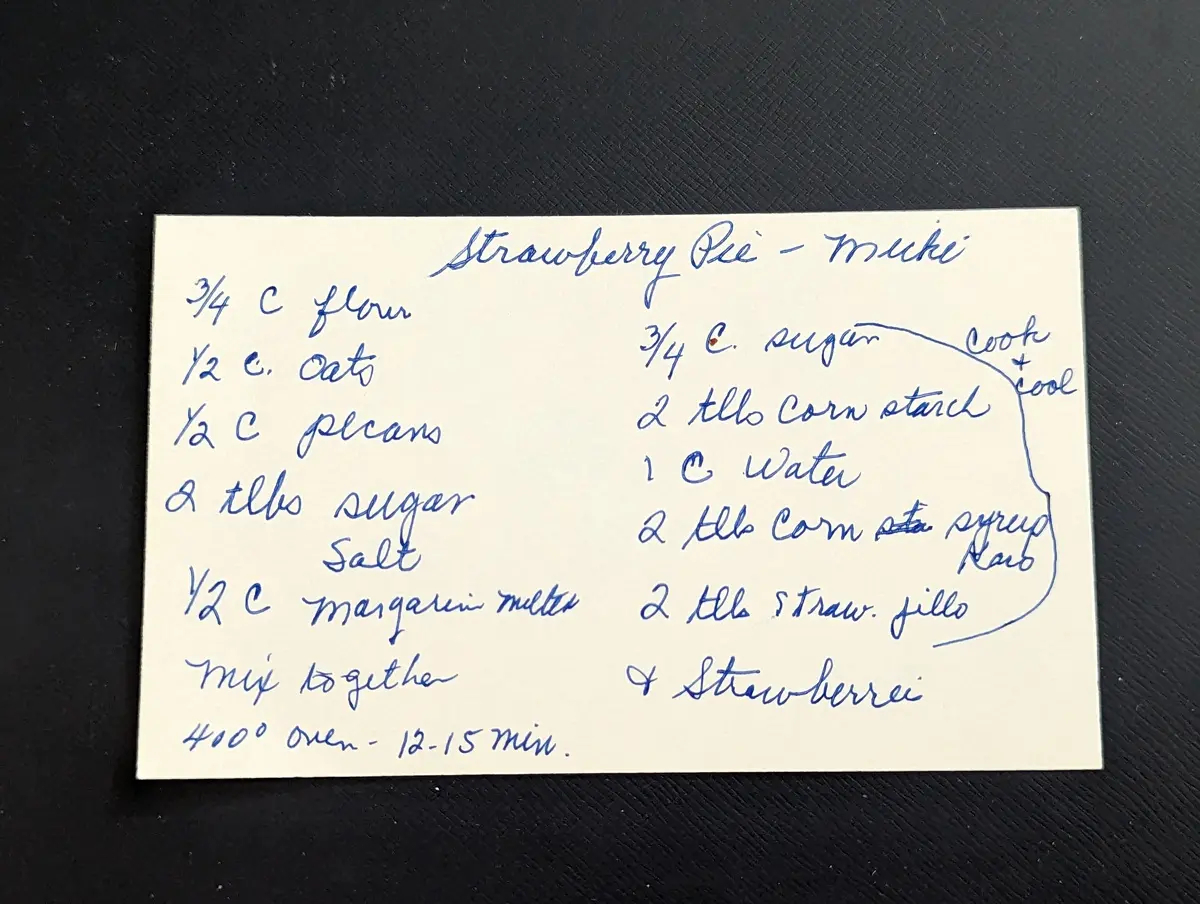 Strawberry Pie - Micki
3/4 C flour
1/2 C. Oats
1/2 C pecans
2 tlbs sugar
Salt
1/2 C Margarin melted
Mix together
400° oven - 12-15 min.
3/4 C. sugar
2 tlbs Corn starch
1 C Water
2 tlb Corn syrup
Karo
2 tlb straw. jello
& Strawberrei
Cook
+
cool